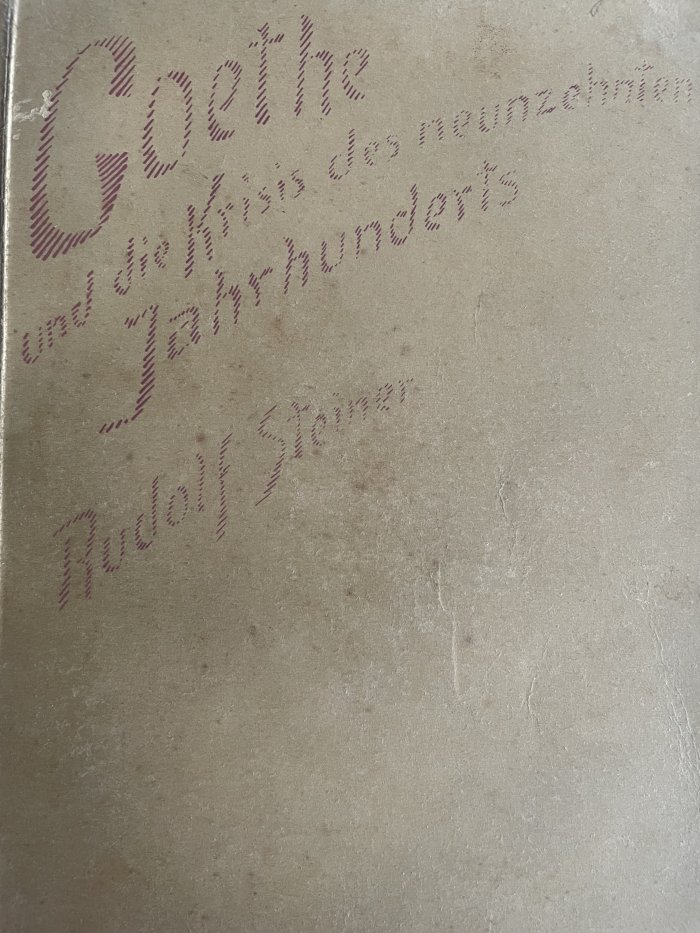 Goethe
und die Krisis des neunzehnten
Jahrhunderts
Rudolf Steiner